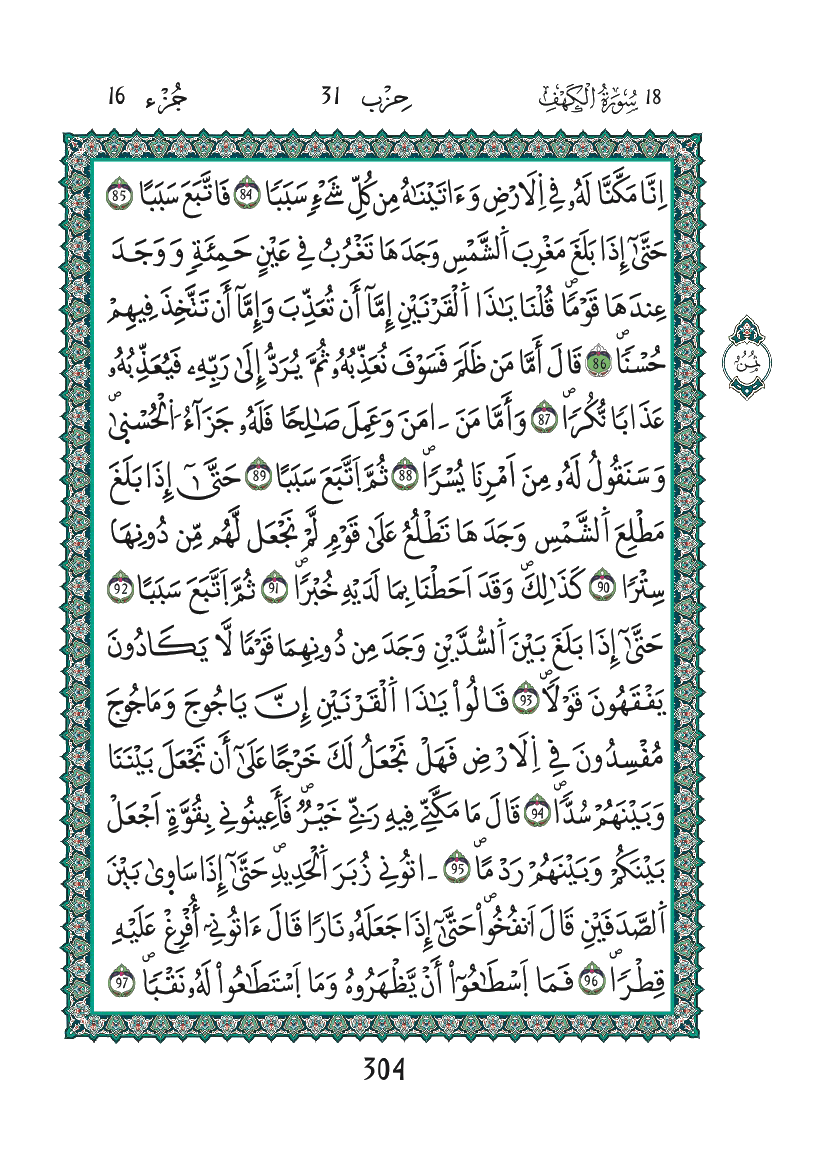 18 سُورَةُ الْكَهْفِ حِزْب 31 جُزْء 16
اِنَّا مَكَّنَّا لَهُۥ فِے اِ۬لَارْضِ وَءَاتَيْنَٰهُ مِن كُلِّ شَےْءٖ سَبَباٗ 84 فَاتَّبَعَ سَبَباً 85
حَتَّىٰٓ إِذَا بَلَغَ مَغْرِبَ اَ۬لشَّمْسِ وَجَدَهَا تَغْرُبُ فِے عَيْنٍ حَمِئَةٖ وَوَجَدَ
عِندَهَا قَوْماٗۖ قُلْنَا يَٰذَا اَ۬لْقَرْنَيْنِ إِمَّآ أَن تُعَذِّبَ وَإِمَّآ أَن تَتَّخِذَ فِيهِمْ
حُسْناٗۖ 86 قَالَ أَمَّا مَن ظَلَمَ فَسَوْفَ نُعَذِّبُهُۥ ثُمَّ يُرَدُّ إِلَىٰ رَبِّهِۦ فَيُعَذِّبُهُۥ
عَذَاباٗ نُّكُراٗۖ 87 وَأَمَّا مَنَ ـ اٰمَنَ وَعَمِلَ صَٰلِحاٗ فَلَهُۥ جَزَآءُ اُ۬لْحُسْنىٰۖ
وَسَنَقُولُ لَهُۥ مِنَ اَمْرِنَا يُسْراٗۖ 88 ثُمَّ اَ۪تَّبَعَ سَبَباً 89 حَتَّىٰٓ إِذَا بَلَغَ
مَطْلِعَ اَ۬لشَّمْسِ وَجَدَهَا تَطْلُعُ عَلَىٰ قَوْمٖ لَّمْ نَجْعَل لَّهُم مِّن دُونِهَا
سِتْراٗ 90 كَذَٰلِكَۖ وَقَدَ اَحَطْنَا بِمَا لَدَيْهِ خُبْراٗۖ 91 ثُمَّ اَ۪تَّبَعَ سَبَباً 92
حَتَّىٰٓ إِذَا بَلَغَ بَيْنَ اَ۬لسُّدَّيْنِ وَجَدَ مِن دُونِهِمَا قَوْماٗ لَّا يَكَادُونَ
يَفْقَهُونَ قَوْلاٗۖ 93 قَالُواْ يَٰذَا اَ۬لْقَرْنَيْنِ إِنَّ يَاجُوجَ وَمَاجُوجَ
مُفْسِدُونَ فِے اِ۬لَارْضِ فَهَلْ نَجْعَلُ لَكَ خَرْجاً عَلَىٰٓ أَن تَجْعَلَ بَيْنَنَا
وَبَيْنَهُمْ سُدّاٗۖ 94 قَالَ مَا مَكَّنِّے فِيهِ رَبِّے خَيْرٞۖ فَأَعِينُونِے بِقُوَّةٍ اَجْعَلْ
بَيْنَكُمْ وَبَيْنَهُمْ رَدْماًۖ 95 ـ اٰتُونِے زُبَرَ اَ۬لْحَدِيدِۖ حَتَّىٰٓ إِذَا سَاوىٰ بَيْنَ
اَ۬لصَّدَفَيْنِ قَالَ اَ۟نفُخُواْۖ حَتَّىٰٓ إِذَا جَعَلَهُۥ نَاراٗ قَالَ ءَاتُونِےٓ أُفْرِغْ عَلَيْهِ
قِطْراٗۖ 96 فَمَا اَ۪سْطَٰعُوٓاْ أَنْ يَّظْهَرُوهُ وَمَا اَ۪سْتَطَٰعُواْ لَهُۥ نَقْباٗۖ 97
ثُمُن
304